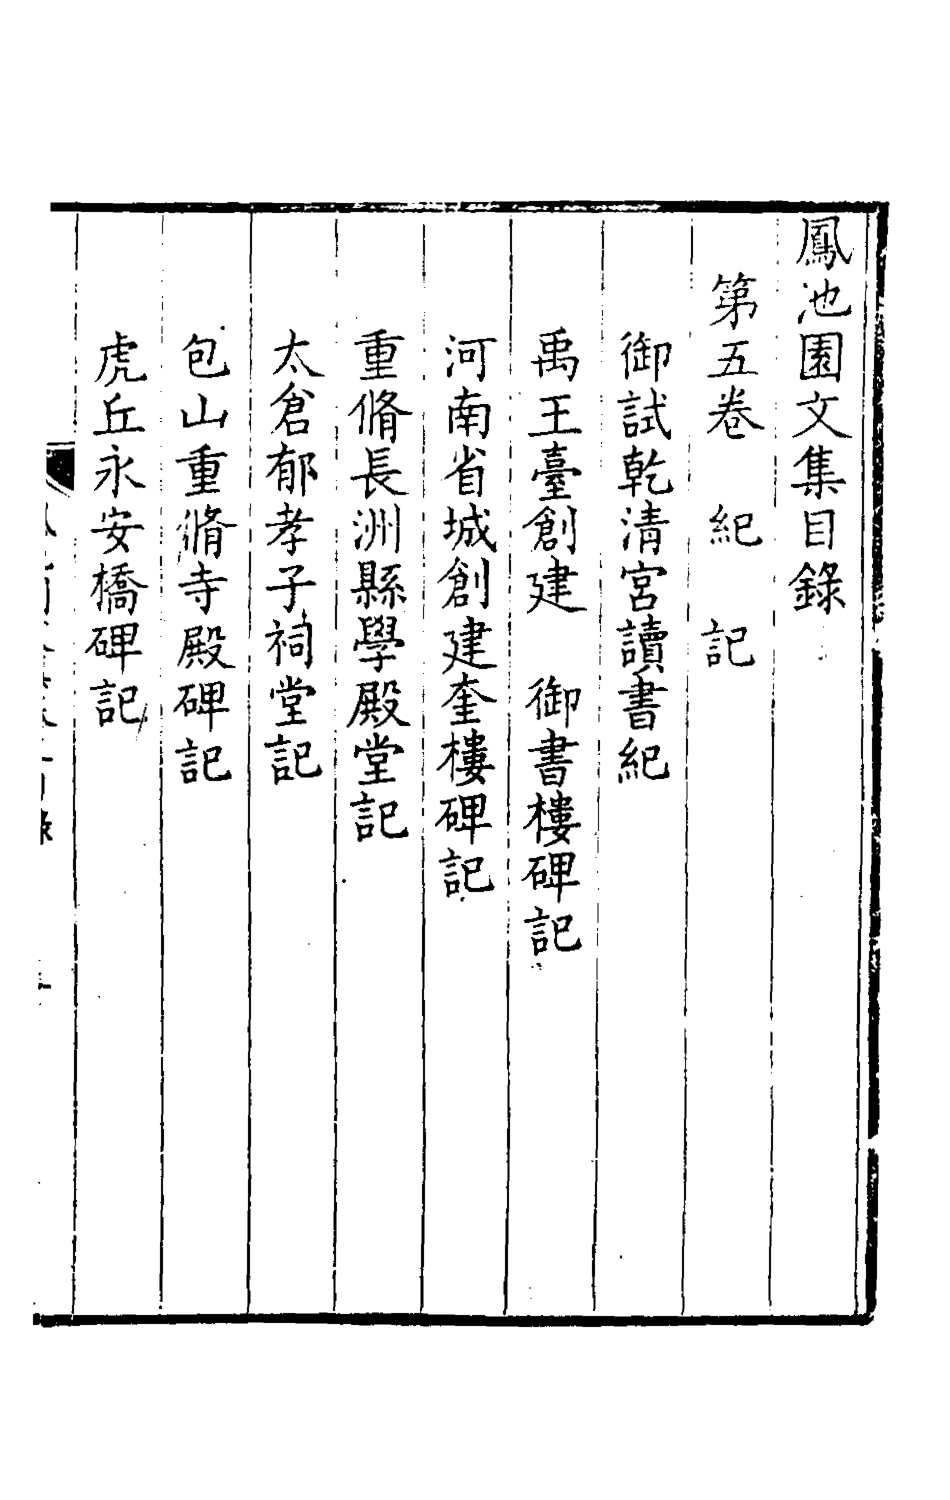 鳳池園文集目錄
第五卷　紀　記
御試乾清宮讀書紀
禹王臺創建　御書樓碑記
河南省城創建奎樓碑記
重脩長洲縣學殿堂記
太倉郁孝子祠堂記
包山重脩寺殿碑記
虎丘永安橋碑記